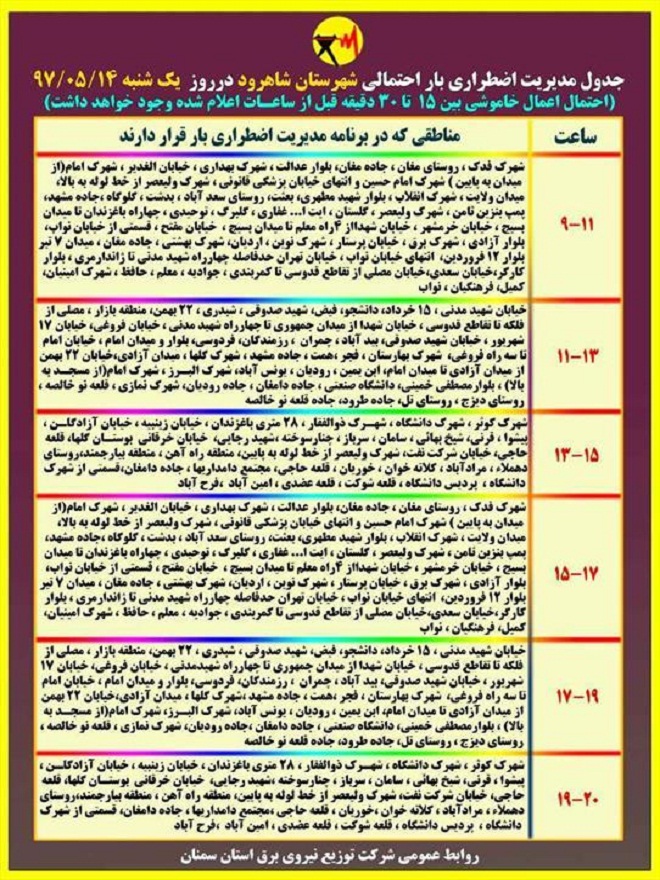 جدول مدیریت اضطراری بار احتمالی شهرستان شاهرود درروز یک شنبه ۹۷/۰۵/۱۴
(احتمال اعمال خاموشی بین ۱۵ تا ۳۰ دقیقه قبل از ساعات اعلام شده وجود خواهد داشت)
ساعت
مناطقی که در برنامه مدیریت اضطراری بار قرار دارند
۹-۱۱
شهرک فدک ، روستای مغان ، جاده مغان، بلوار عدالت ، شهرک بهداری ، خیابان الغدیر ، شهرک امام(از
میدان به پایین ) شهرک امام حسین و انتهای خیابان پزشکی قانونی ، شهرک ولیعصر از خط لوله به بالا،
میدان ولایت ، شهرک انقلاب ، بلوار شهید مطهری، بعثت، روستای سعد آباد ، بدشت ، گلوگاه ،جاده مشهد،
پمپ بنزین ثامن ، شهرک ولیعصر ، گلستان ، آیت ا... غفاری ، گلبرگ ، توحیدی ، چهاراه باغزندان تا میدان
بسیج ، خیابان خرمشهر ، خیابان شهدا(از ۴راه معلم تا میدان بسیج ، خیابان مفتح ، قسمتی از خیابان نواب،
بلوار آزادی ، شهرک برق ، خیابان پرستار ، شهرک نوین ، اردیان، شهرک بهشتی ، جاده مغان ، میدان ۷ تیر
بلوار ۱۲ فروردین، انتهای خیابان نواب ، خیابان تهران حدفاصله چهارراه شهید مدنی تا ژاندارمری ، بلوار
کارگر،خیابان سعدی،خیابان مصلی از تقاطع قدوسی تا کمربندی ، جوادیه ، معلم ، حافظ ، شهرک امینیان،
کمیل، فرهنگیان ، نواب
۱۱-۱۳
خیابان شهید مدنی ، ۱۵ خرداد، دانشجو، فیض، شهید صدوقی ، شیدری ، ۲۲ بهمن، منطقه بازار ، مصلی از
فلکه تا تقاطع قدوسی ، خیابان شهدا از میدان جمهوری تا چهارراه شهید مدنی ، خیابان فروغی، خیابان ۱۷
شهریور ، خیابان شهید صدوقی، بید آباد ، چمران ، رزمندگان، فردوسی، بلوار و میدان امام ، خیابان امام
تا سه راه فروغی، شهرک بهارستان ، فجر ،همت ، جاده مشهد ، شهرک گلها ، میدان آزادی،خیابان ۲۲ بهمن
از میدان آزادی تا میدان امام، ابن یمین ، رودیان ، یونس آباد، شهرک البرز ، شهرک امام(از مسجد به
بالا) ، بلوارمصطفی خمینی، دانشگاه صنعتی ، جاده دامغان ، جاده رودیان، شهرک نمازی ، قلعه نو خالصه ،
روستای دیزج ، روستای تل، جاده طرود، جاده قلعه نو خالصه
۱۳-۱۵
شهرک کوثر ، شهرک دانشگاه ، شهرک ذوالفقار ، ۲۸ متری باغزندان ، خیابان زینبیه ، خیابان آزادگان ،
پیشوا ، قرنی، شیخ بهائی ، سامان ، سرباز ، چنارسوخته ،شهید رجایی، خیابان خرقانی بوستان گلها، قلعه
حاجی، خیابان شرکت نفت، شهرک ولیعصر از خط لوله به پایین، منطقه راه آهن ، منطقه بیارجمند،روستای
دهملاء ، مرادآباد ، کلاته خوان ، خوریان ، قلعه حاجی، مجتمع دامداریها ، جاده دامغان،قسمتی از شهرک
دانشگاه ، پردیس دانشگاه ، قلعه شوکت ، قلعه عضدی ، امین آباد ،فرح آباد
۱۵-۱۷
شهرک فدک ، روستای مغان ، جاده مغان، بلوار عدالت ، شهرک بهداری ، خیابان الغدیر ، شهرک امام(از
میدان به پایین ) شهرک امام حسین و انتهای خیابان پزشکی قانونی ، شهرک ولیعصر از خط لوله به بالا،
میدان ولایت ، شهرک انقلاب ، بلوار شهید مطهری، بعثت، روستای سعد آباد ، بدشت ، گلوگاه ،جاده مشهد،
پمپ بنزین ثامن ، شهرک ولیعصر ، گلستان ، آیت ا... غفاری ، گلبرگ ، توحیدی ، چهاراه باغزندان تا میدان
بسیج ، خیابان خرمشهر ، خیابان شهدا(از ۴راه معلم تا میدان بسیج ، خیابان مفتح ، قسمتی از خیابان نواب،
بلوار آزادی ، شهرک برق ، خیابان پرستار ، شهرک نوین ، اردیان، شهرک بهشتی ، جاده مغان ، میدان ۷ تیر
بلوار ۱۲ فروردین، انتهای خیابان نواب ، خیابان تهران حدفاصله چهارراه شهید مدنی تا ژاندارمری ، بلوار
کارگر،خیابان سعدی،خیابان مصلی از تقاطع قدوسی تا کمربندی ، جوادیه ، معلم ، حافظ ، شهرک امینیان،
کمیل، فرهنگیان ، نواب
۱۷-۱۹
خیابان شهید مدنی ، ۱۵ خرداد، دانشجو، فیض، شهید صدوقی ، شیدری ، ۲۲ بهمن، منطقه بازار ، مصلی از
فلکه تا تقاطع قدوسی ، خیابان شهدا از میدان جمهوری تا چهارراه شهیدمدنی ، خیابان فروغی، خیابان ۱۷
شهریور ، خیابان شهید صدوقی، بید آباد ، چمران ، رزمندگان، فردوسی، بلوار و میدان امام ، خیابان امام
تا سه راه فروغی، شهرک بهارستان ، فجر ،همت ، جاده مشهد ،شهرک گلها ، میدان آزادی،خیابان ۲۲ بهمن
از میدان آزادی تا میدان امام، ابن یمین ، رودیان ، یونس آباد، شهرک البرز،شهرک امام(از مسجد به
بالا) ، بلوارمصطفی خمینی، دانشگاه صنعتی ، جاده دامغان ،جاده رودیان، شهرک نمازی ، قلعه نو خالصه ،
روستای دیزج ، روستای تل، جاده طرود، جاده قلعه نو خالصه
۱۹-۲۰
شهرک کوثر ، شهرک دانشگاه ، شهرک ذوالفقار ، ۲۸ متری باغزندان ، خیابان زینبیه ، خیابان آزادگان ،
پیشوا ، قرنی، شیخ بهائی ، سامان ، سرباز ، چنارسوخته ،شهید رجایی، خیابان خرقانی بوستان گلها، قلعه
حاجی، خیابان شرکت نفت، شهرک ولیعصر از خط لوله به پایین، منطقه راه آهن ، منطقه بیارجمند،روستای
دهملاء ، مرادآباد ، کلاته خوان ،خوریان ، قلعه حاجی ،مجتمع دامداریها ، جاده دامغان، قسمتی از شهرک
دانشگاه ، پردیس دانشگاه ، قلعه شوکت ، قلعه عضدی ، امین آباد ،فرح آباد
روابط عمومی شرکت توزیع نیروی برق استان سمنان